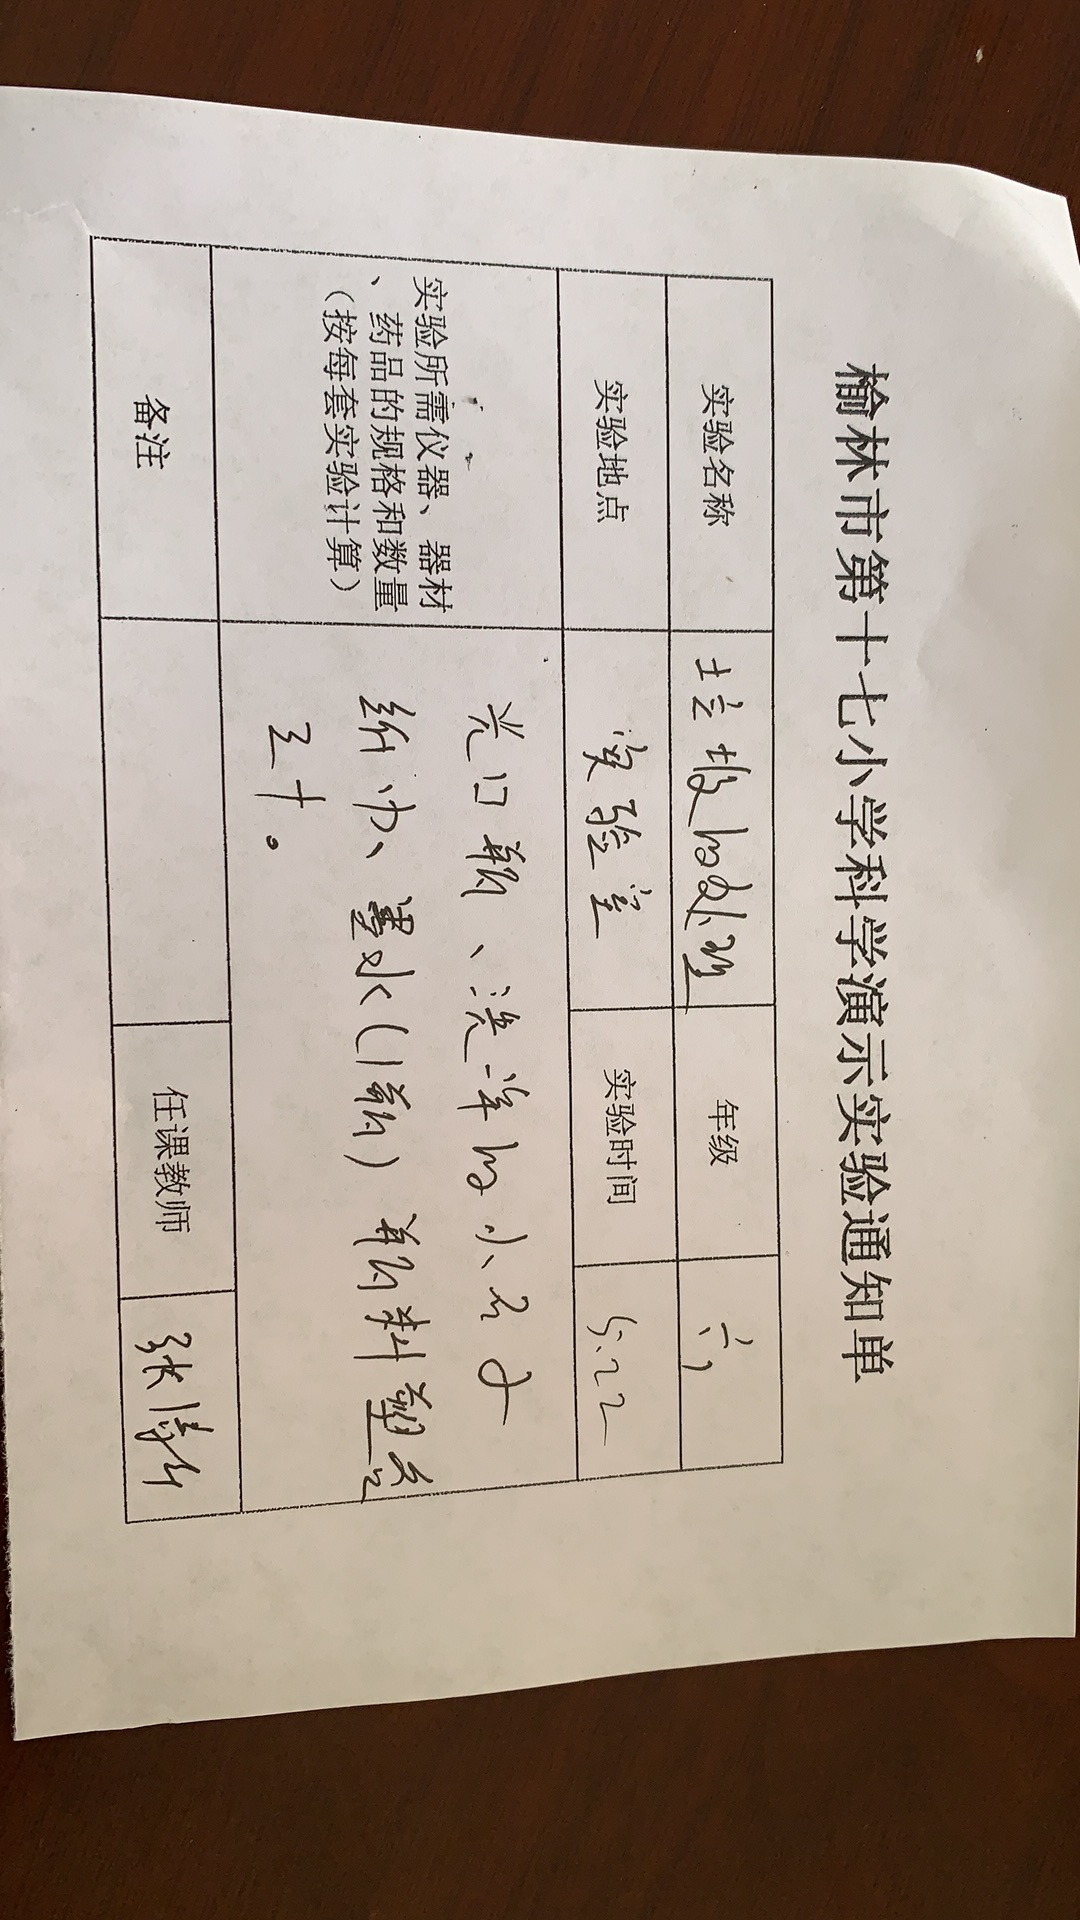 榆林市第十七小学科学演示实验通知单
实验名称 垃圾的处理 年级 六
实验地点 实验室 实验时间 5.22
实验所需仪器、器材
、药品的规格和数量
（按每套实验计算）
广口瓶、洗净的小石子
纸巾、墨水（1瓶）瓶料塑盒
玉十。
备注 任课教师 张